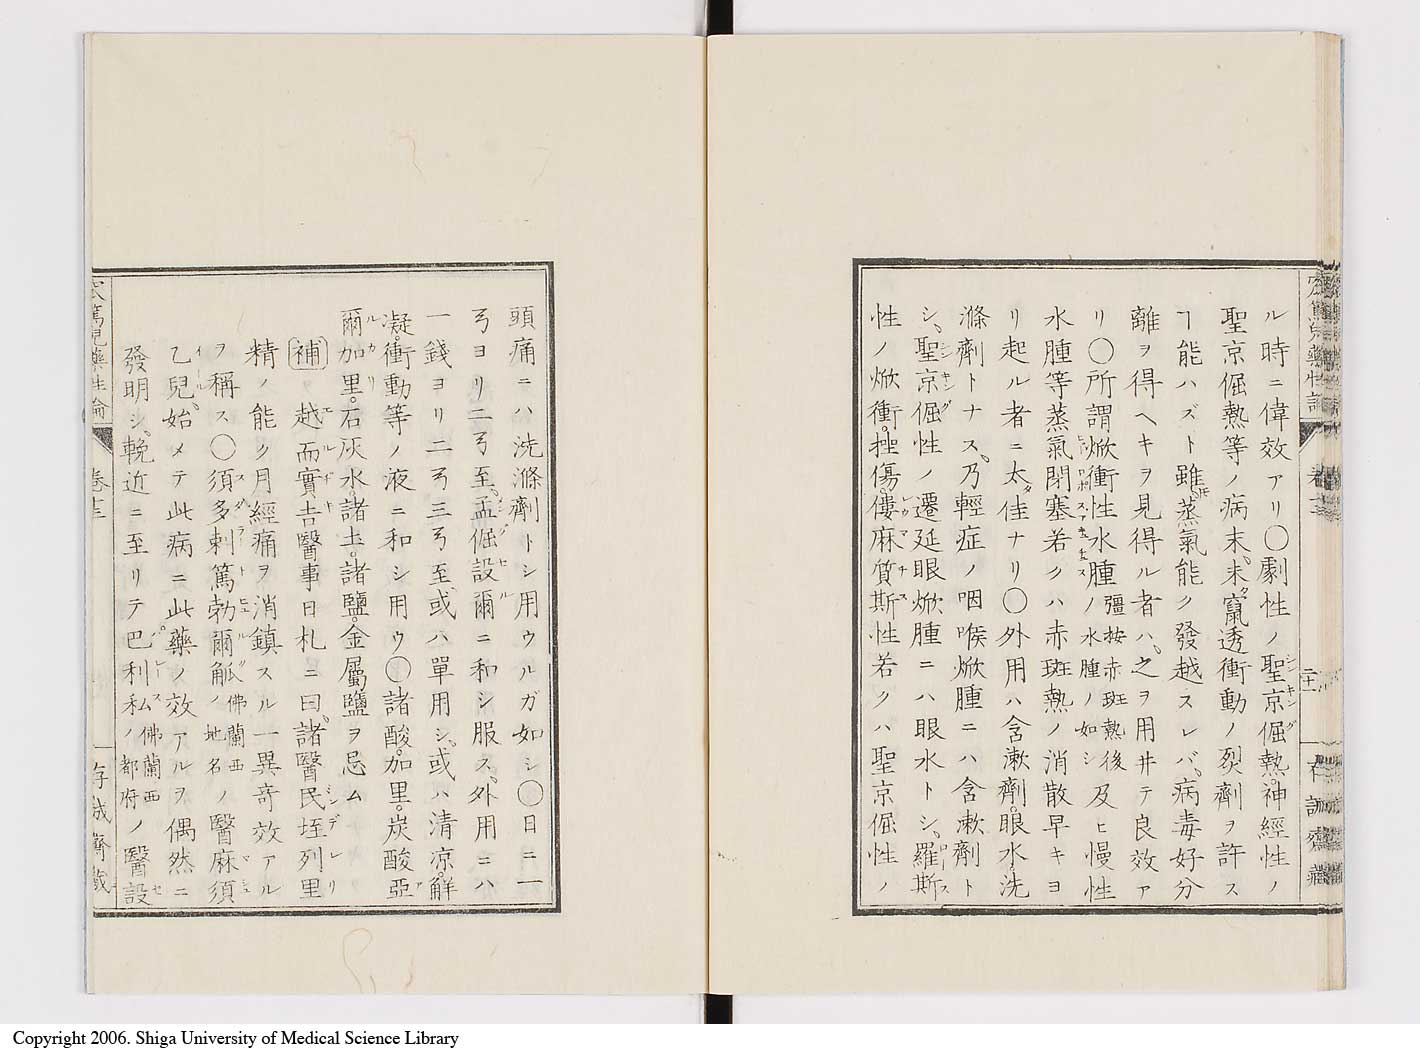 ル時ニ偉效アリ〇劇性ノ聖京倔熱。神經性ノ
聖京倔熱等ノ病末、未タ竄透衝動ノ烈劑ヲ許ス
ヿ能ハズト雖𪜈、蒸氣能ク發越スレバ、病毒好分
離ヲ得ヘキヲ見得ル者ハ、之ヲ用井テ良效ア
リ〇所謂焮衝性水腫ノ水腫ノ如シ彊按赤斑熱後及ヒ慢性
水腫等蒸氣閉塞若クハ赤斑熱ノ消散早キヨ
リ起ル者ニ太タ佳ナリ〇外用ハ含漱劑眼水洗
滌劑トナス、乃輕症ノ咽喉焮腫ニハ含漱劑ト
シ、聖京倔性ノ遷延眼焮腫ニハ眼水トシ、羅斯
性ノ焮衝。挫傷僂麻質斯性若クハ聖京倔性ノ
頭痛ニハ洗滌劑トシ用ウルガ如シ〇日ニ一
弓ヨリ二弓至。孟倔設爾ニ和シ服ス、外用ニハ
一錢ヨリ二弓三弓至、或ハ單用シ、或ハ清凉。解
凝。衝動等ノ液ニ和シ用ウ〇諸酸。加里。炭酸亞
爾加里。石灰水。諸土。諸鹽。金屬鹽ヲ忌ム
補 越而實吉醫事日札ニ曰、諸醫民垤列里
精ノ能ク月經痛ヲ消鎮スル一異奇效アル
ヲ稱ス〇須多剌篤勃爾觚ノ地名佛蘭西ノ醫麻須
乙兒、始メテ此病ニ此藥ノ效アルヲ偶然ニ
發明シ、輓近ニ至リテ巴利私ノ都府佛蘭西ノ醫設
篤兒藥性論 卷十三 存誠齋藏